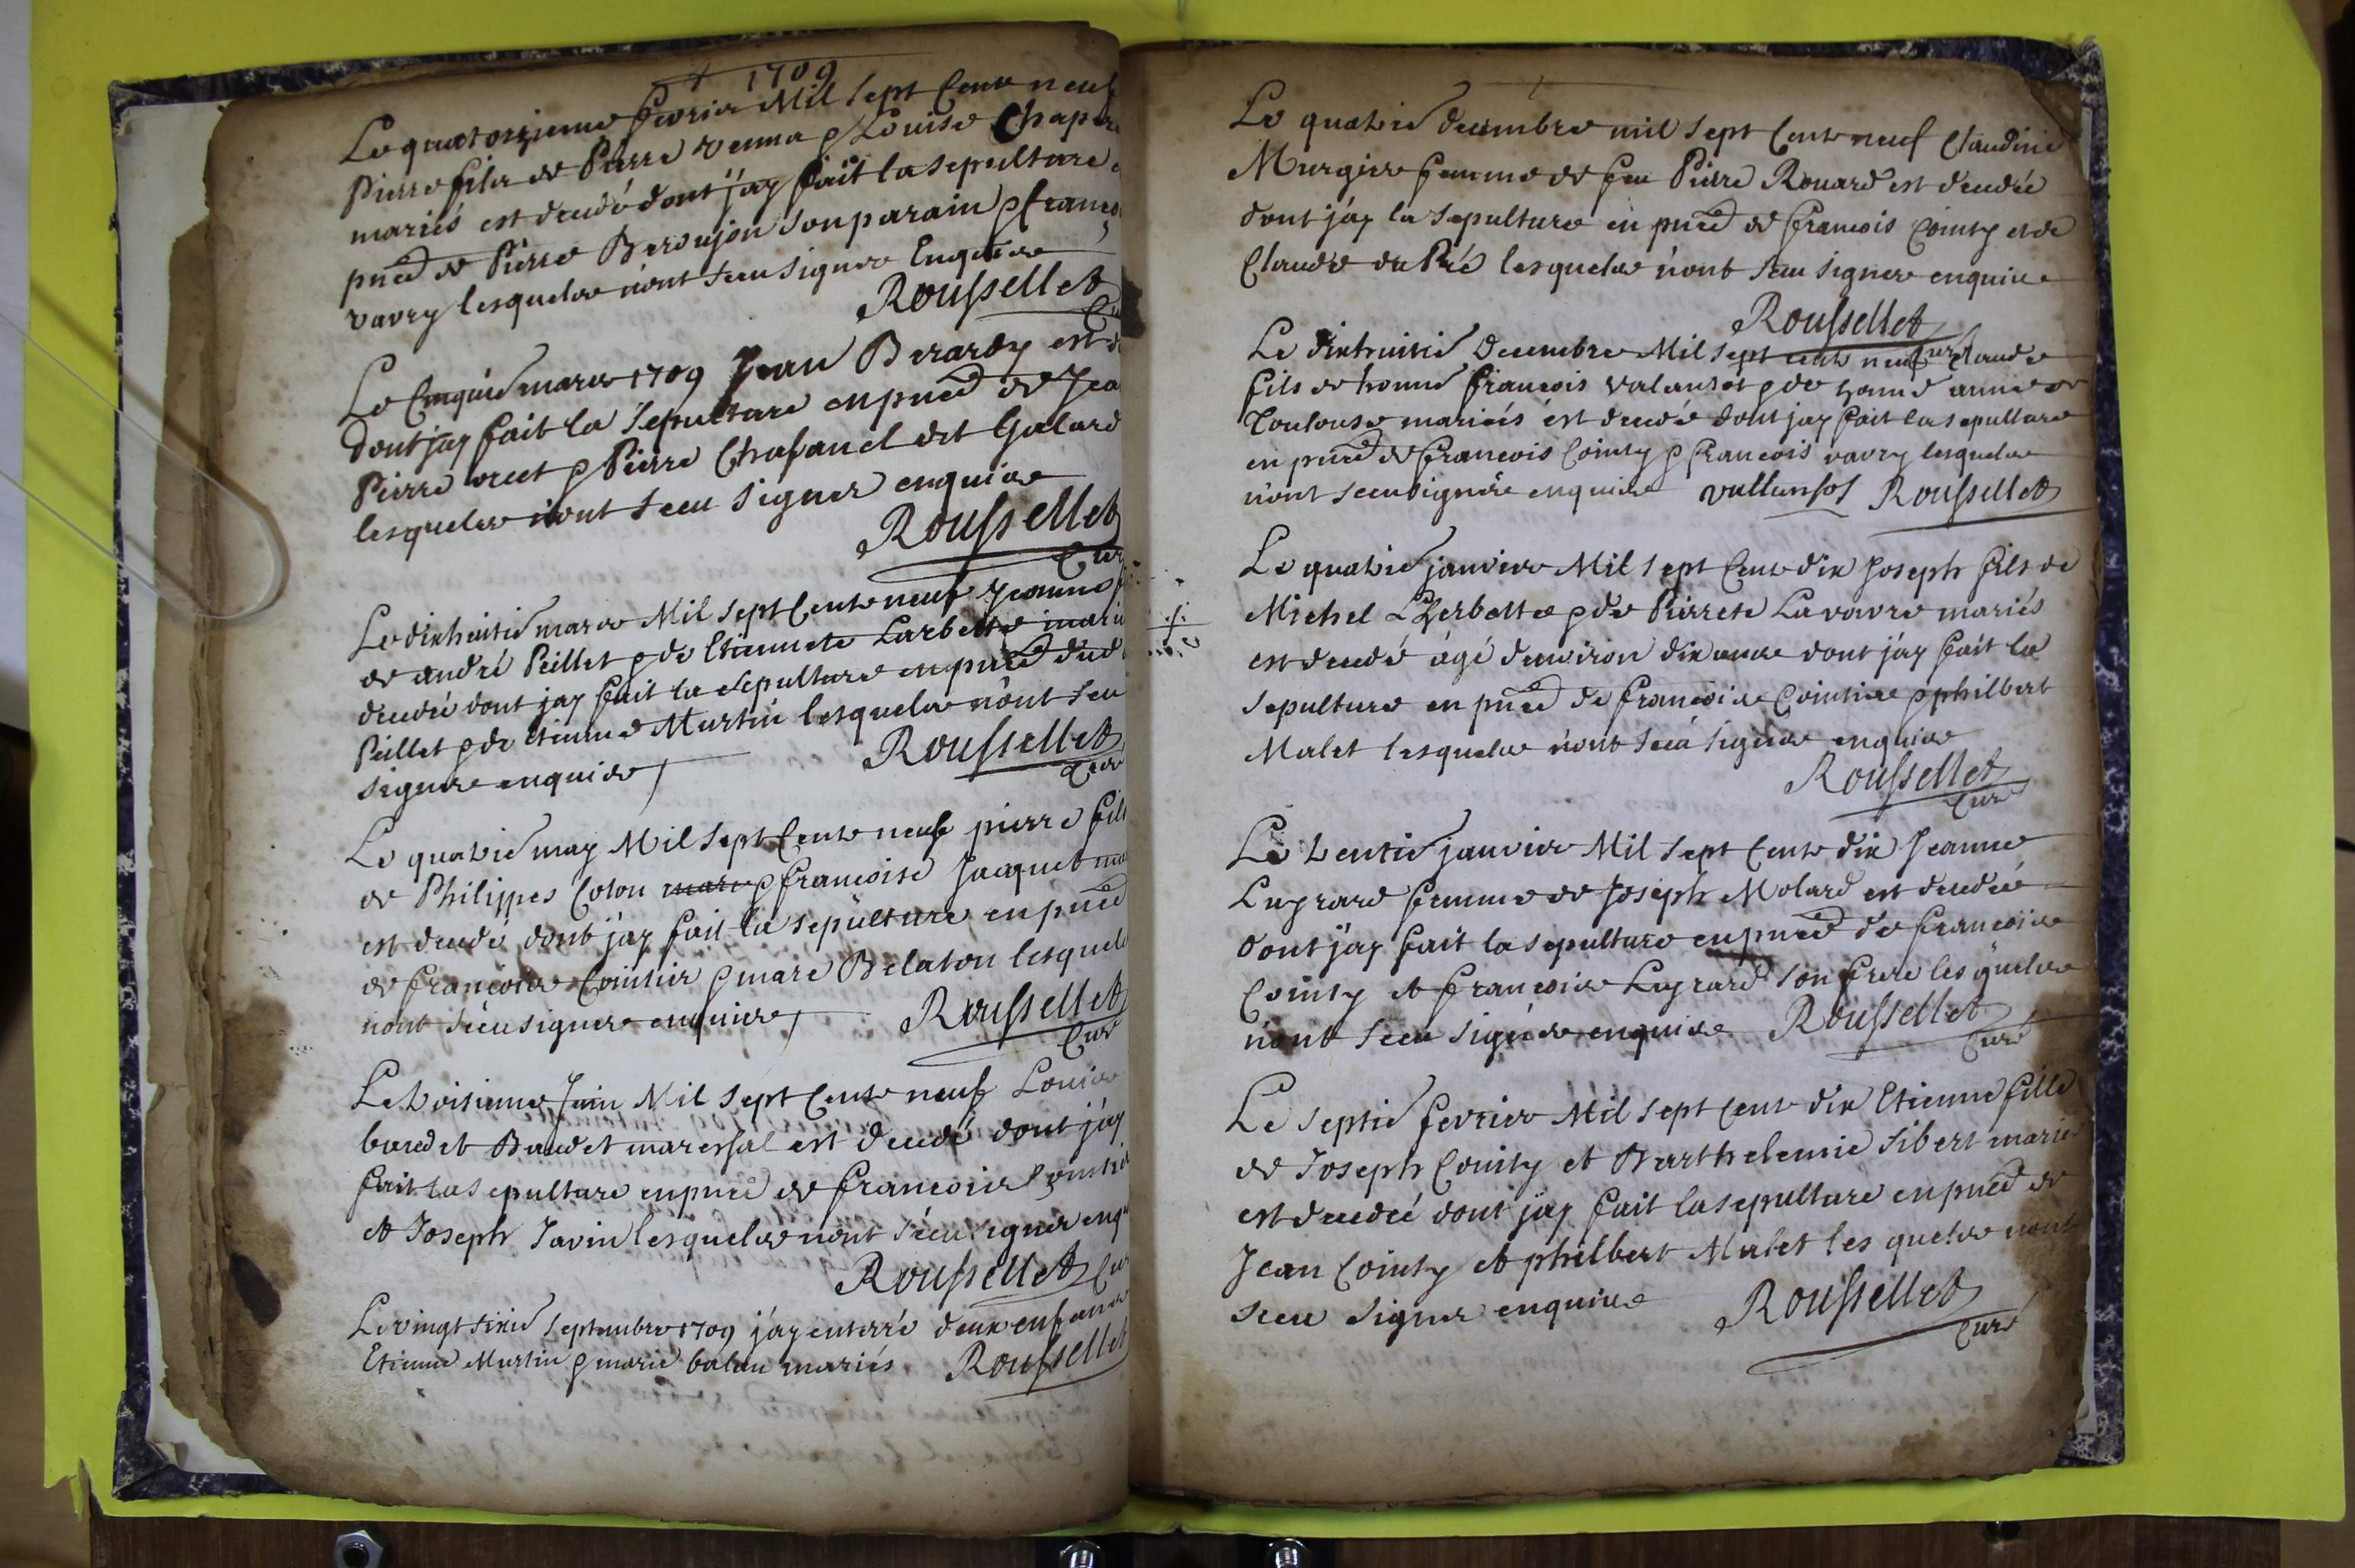 1709
Le quatorzieme fevrier Mil sept cents neuf
Pierre fils de Pierre venna & Louise Chap
mariés est decedé dont j'ay fait la sepulture
pnce de Pierre Beroujon son parain & franco
vavry lesquels n'ont sceu signer Enquise
Roussellet
Le Cinquie mars 1709 Jean Berardy est
dont jay fait la sepulture en pnce de Jea
Pierre & Pierre Chasanel dit Galard
lesquels n'ont sceu signer enquise
Roussellet
Cur
Le dixhuitie mars Mil sept cents neuf Jeanne
de andré Peillet & de Etiennete Larbette mari
decedée dont jay fait la sepulture en pnce dud
Peillet & de etienne Martin lesquels n'ont sceu
signer enquise
Roussellet
Curé
Le quatrie may Mil sept cents neuf pierre fils
de Philippes Coton & francoise Jacquet ma
est decedé dont j'ay fait la sepulture en pnce
de francois Cointier & marc Belaton lesquels
n'ont sceu signer enquise
Roussellet
Curé
Le troisieme Juin Mil sept cents neuf Louis
baudet Baudet maressal est decedé dont j'ay
fait la sepulture en pnce de francois Cointi
et Joseph Javin lesquels n'ont sceu signer enq
Roussellet Cur
Le vingt sixie septembre 1709 j'ay enterré deux enfans
Etienne Martin & marie balan mariés Roussellet
Le quatrie decembre mil sept cents neuf Claudine
Murgier femme de feu Pierre Rouard est decedée
dont j'ay la sepulture en pnce de francois Cointy et de
Claude du Pré lesquels n'ont sceu signer enquise
Roussellet
curé
Le dixhuitie Decembre Mil sept cents neuf claude
fils de honne francois valansot & de honne anne de
Toulouse mariés est decedé dont jay fait la sepulture
en pnce de francois Cointy & francois vavry lesquels
n'ont sceu signer enquise vallansot Roussellet
Le quatrie janvier Mil sept cents dix Joseph fils de
Michel Lherbette & de Pierrete Lavavre mariés
est decedé agé denviron dix ans dont j'ay fait la
sepulture en pnce de francois Cointier & philbert
Malet lesquels n'ont sceu signer enquise
Roussellet
curé
Le trentie janvier Mil sept cents dix Jeanne
Lugrard femme de Joseph Molard est decedée
dont j'ay fait la sepulture en pnce de francois
Cointy et francois Lugrard son frere les quels
n'ont sceu signer enquise Roussellet
Curé
Le septie fevrier Mil sept cents dix Etienne fille
de Joseph Cointy et Barthelemie Sibert mariés
est decedée dont jay fait la sepulture en pnce de
Jean Cointy et philbert Malet les quels n'ont
sceu signer enquise Roussellet
curé